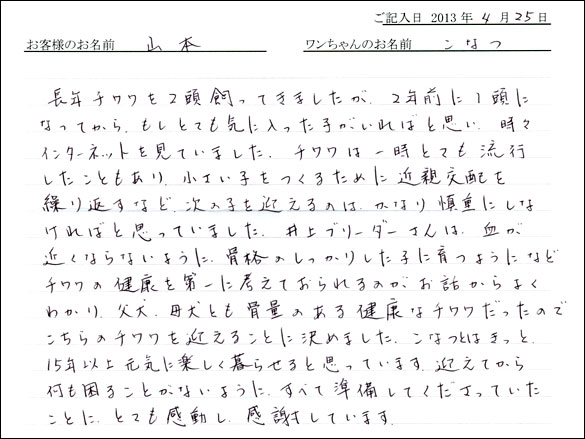 ご記入日 2013 年 4 月 25 日
お客様のお名前 山本 ワンちゃんのお名前 こなつ
長年チワワを2頭飼ってきましたが、2年前に1頭に
なってから、もしとても気に入った子がいればと思い、時々
インターネットを見ていました。チワワは一時とても流行
したこともあり、小さい子をつくるために近親交配を
繰り返すなど、次の子を迎えるのは、かなり慎重にしな
ければと思っていました。井上ブリーダーさんは、血が
近くならないように、骨格のしっかりした子に育つようになど
チワワの健康を第一に考えておられるのがお話からよく
わかり、父犬、母犬とも骨量のある健康なチワワだったので
こちらのチワワを迎えることに決めました。こなつとはきっと、
15年以上元気に楽しく暮らせると思っています。迎えてから
何も困ることがないように、すべて準備してくださっていた
ことに、とても感動し、感謝しています。